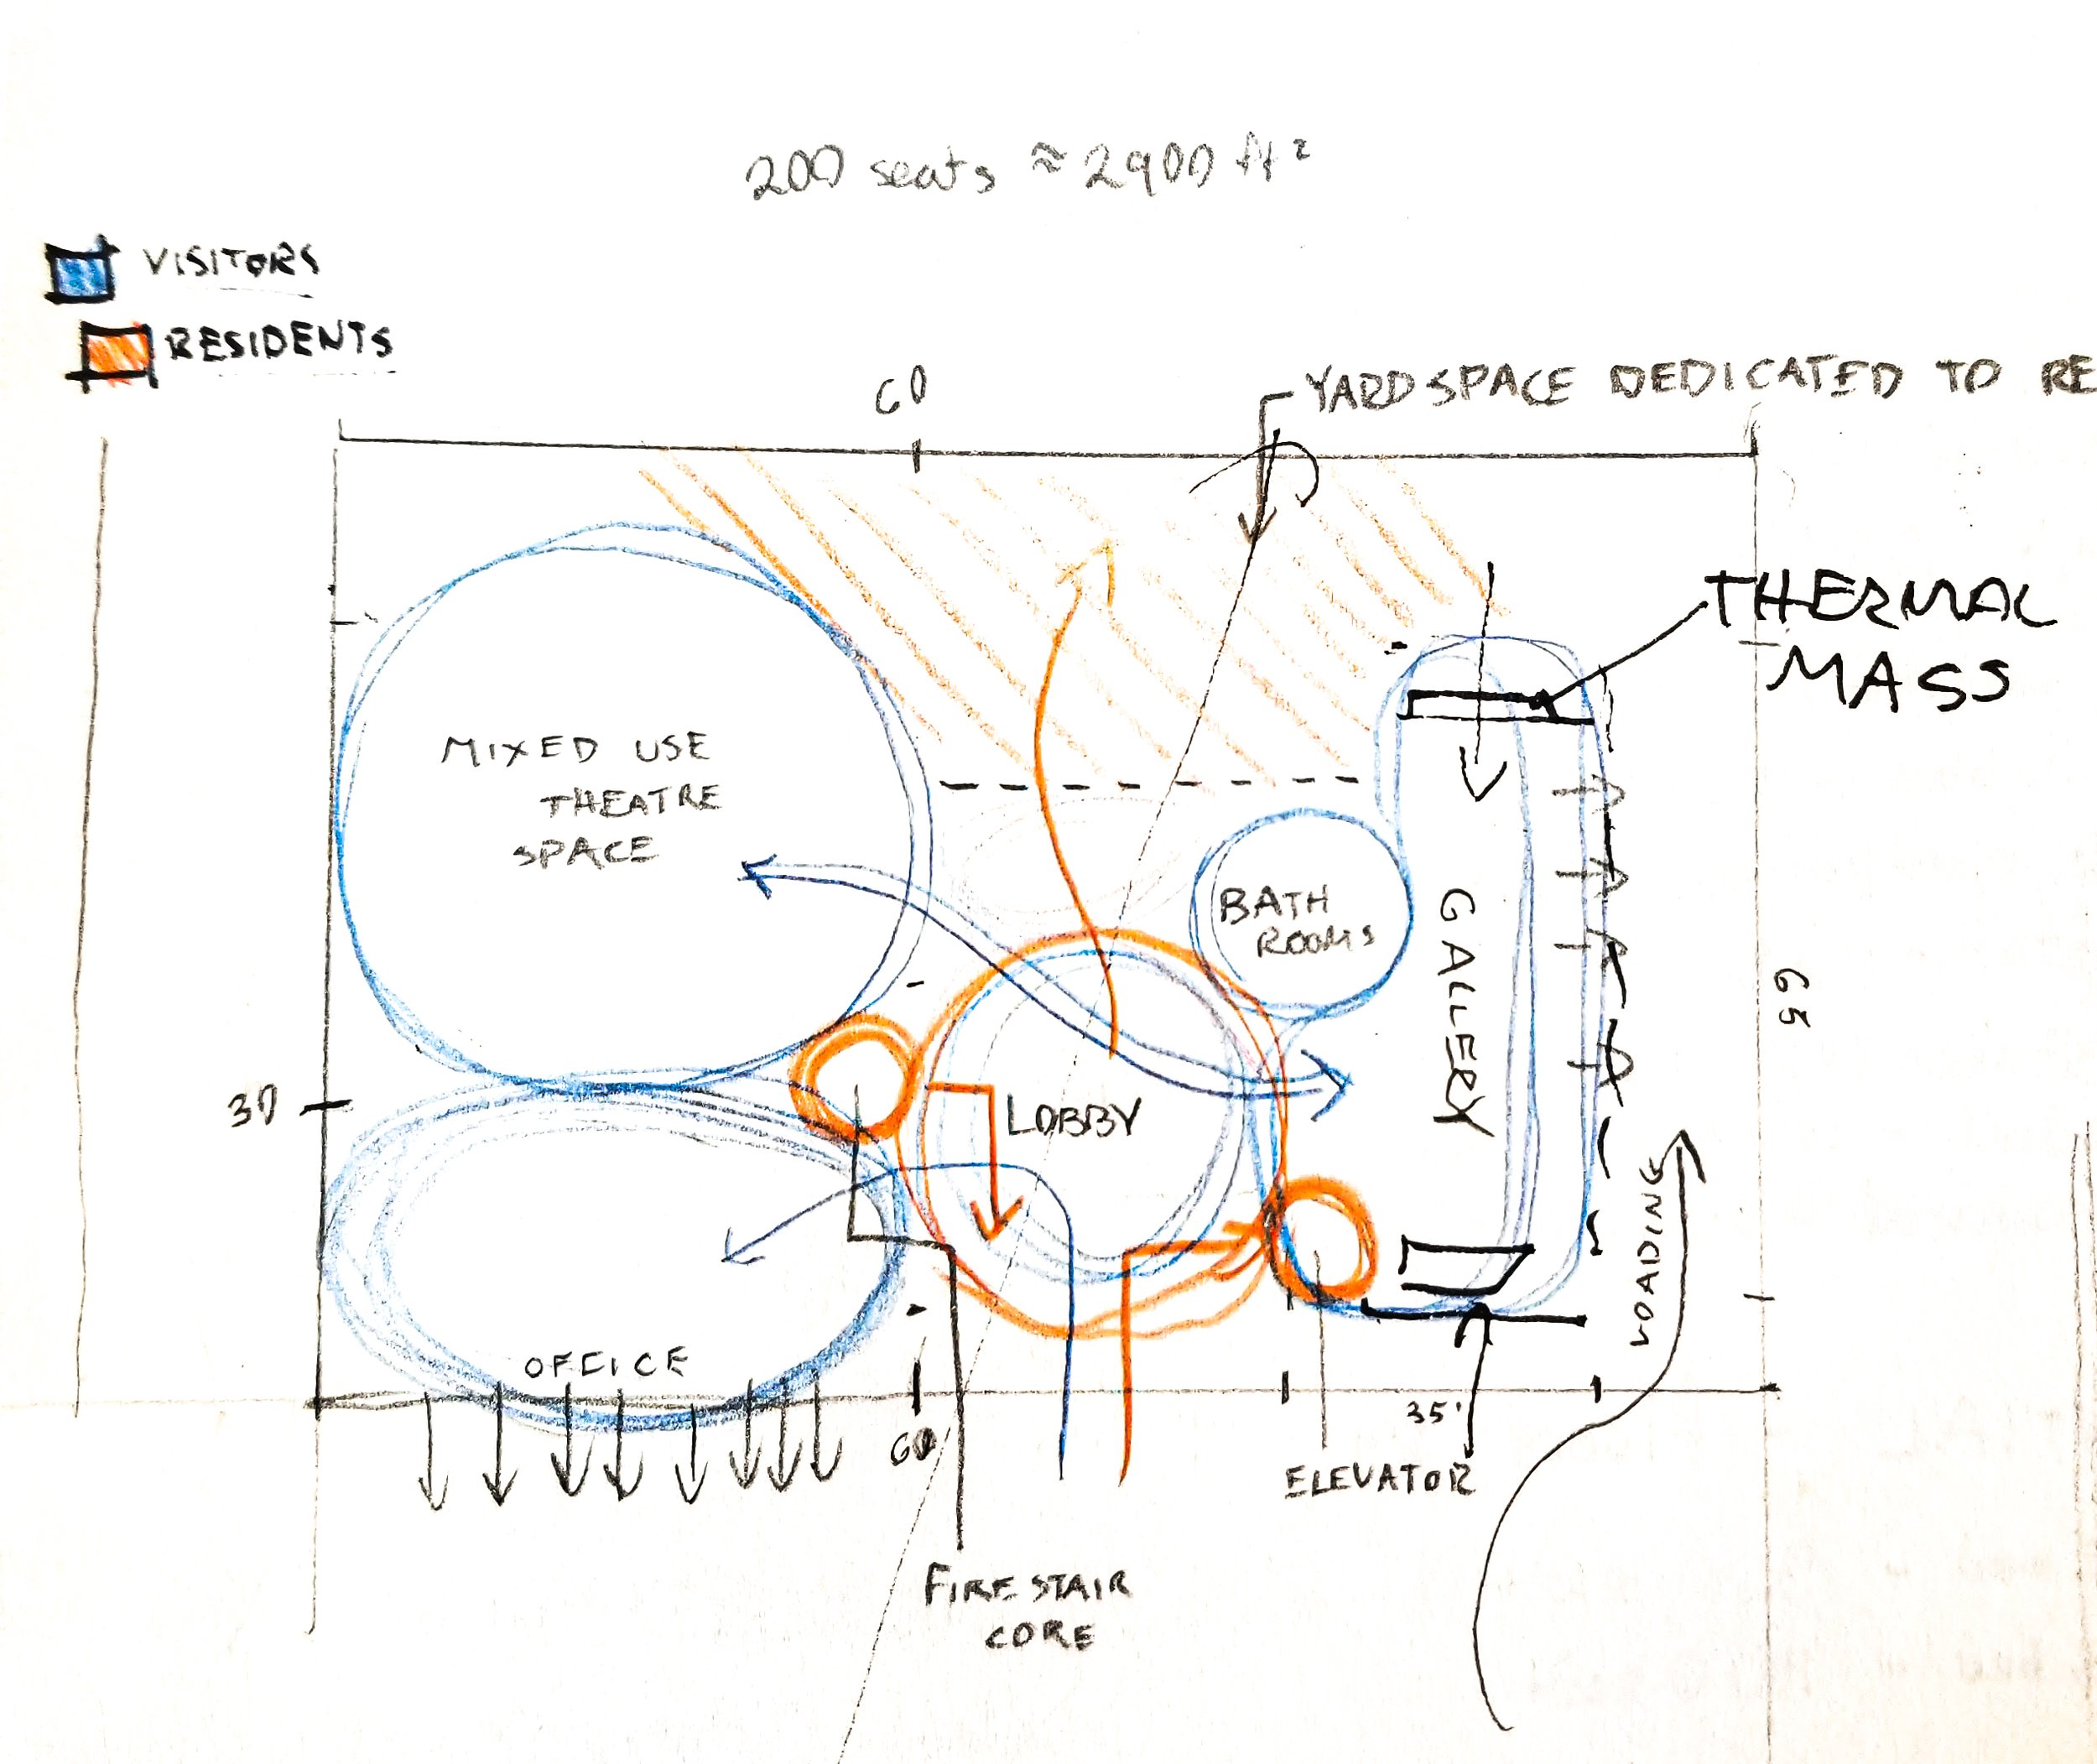 200 seats ≈ 2900 ft²
VISITORS
RESIDENTS
60
YARD SPACE DEDICATED TO RE
THERMAL
MASS
MIXED USE
THEATRE
SPACE
BATH
ROOMS
GALLERY
65
30
LOBBY
LOADING
OFFICE
60
35'
ELEVATOR
FIRE STAIR
CORE